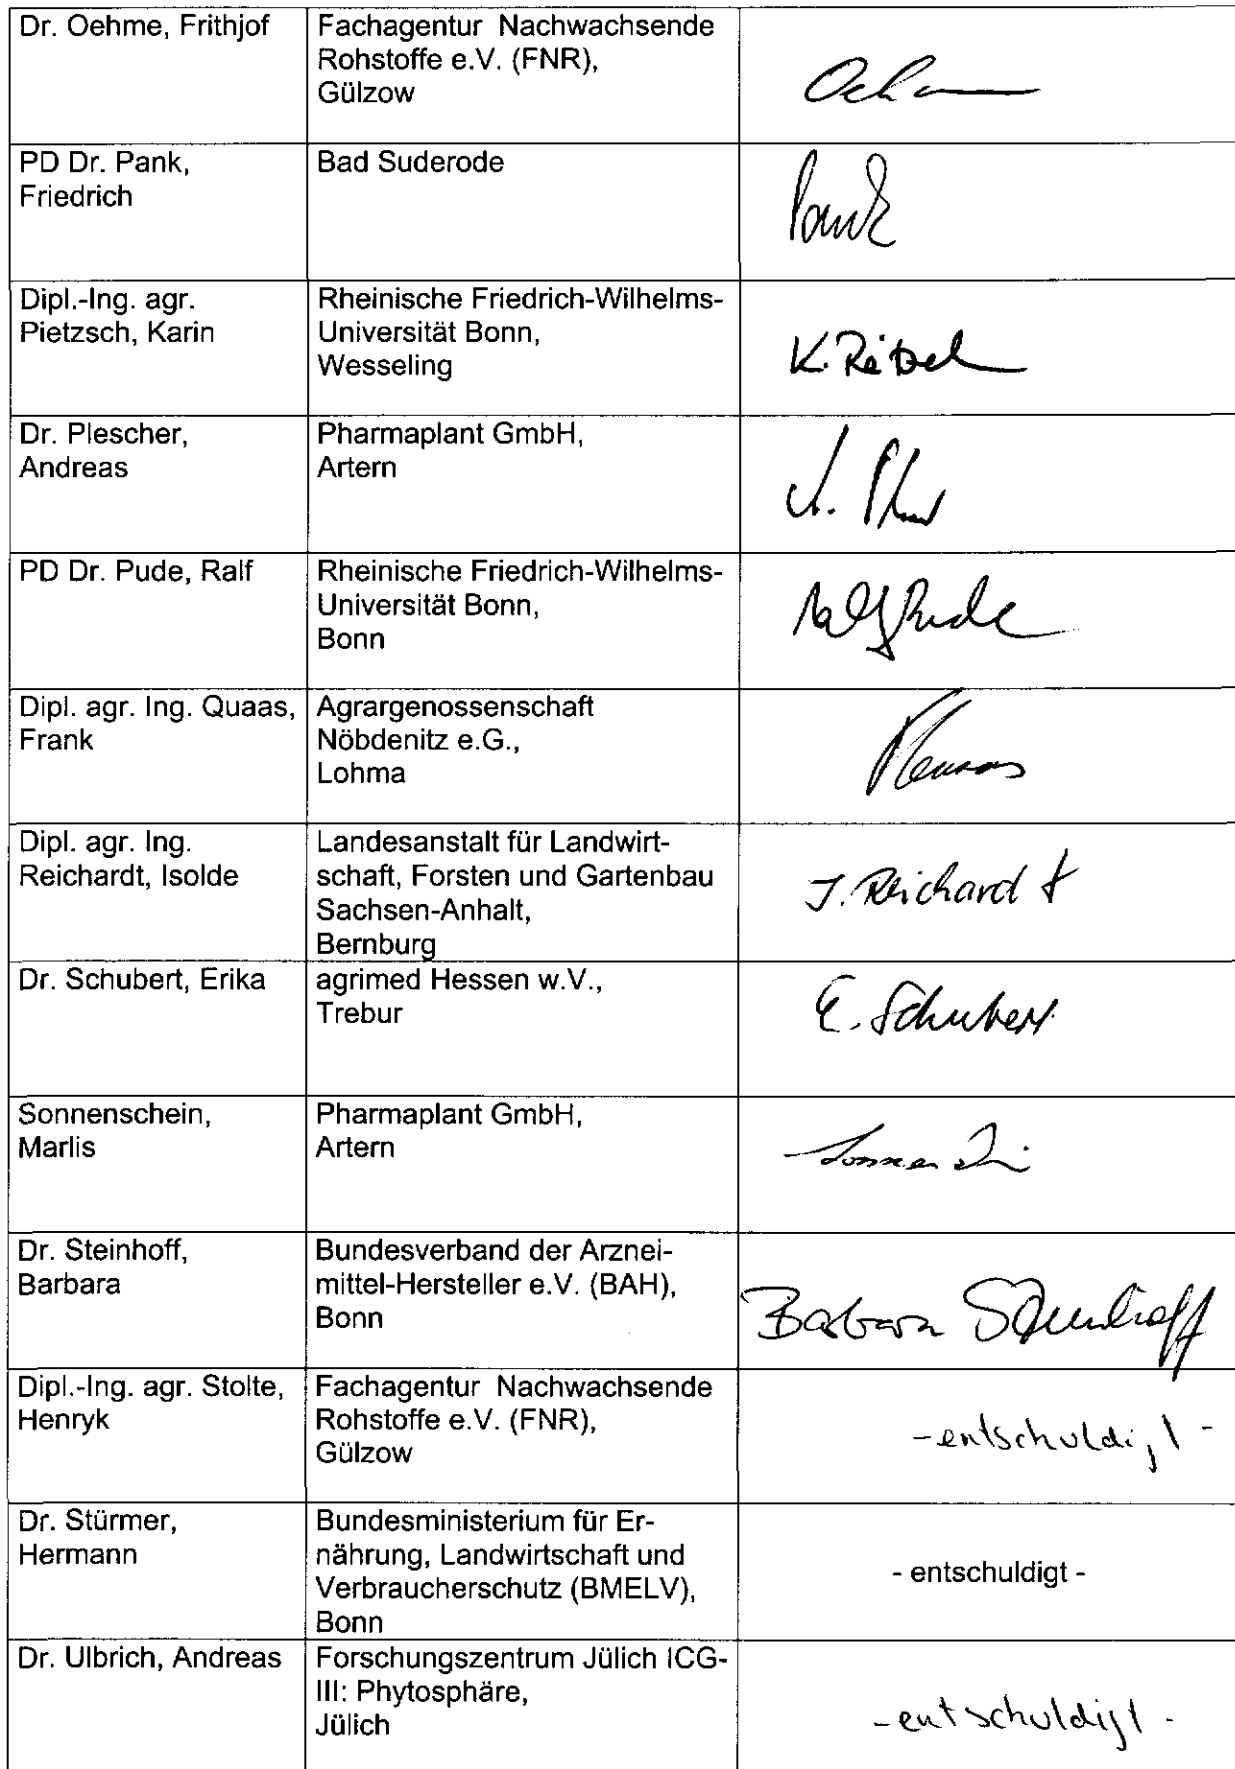 Dr. Oehme, Frithjof
Fachagentur Nachwachsende
Rohstoffe e.V. (FNR),
Gülzow
PD Dr. Pank,
Friedrich
Bad Suderode
Pank
Dipl.-Ing. agr.
Pietzsch, Karin
Rheinische Friedrich-Wilhelms-
Universität Bonn,
Wesseling
Dr. Plescher,
Andreas
Pharmaplant GmbH,
Artern
PD Dr. Pude, Ralf
Rheinische Friedrich-Wilhelms-
Universität Bonn,
Bonn
Ralf Pude
Dipl. agr. Ing. Quaas,
Frank
Agrargenossenschaft
Nöbdenitz e.G.,
Lohma
Dipl. agr. Ing.
Reichardt, Isolde
Landesanstalt für Landwirt-
schaft, Forsten und Gartenbau
Sachsen-Anhalt,
Bernburg
I. Reichardt
Dr. Schubert, Erika
agrimed Hessen w.V.,
Trebur
E. Schubert
Sonnenschein,
Marlis
Pharmaplant GmbH,
Artern
Dr. Steinhoff,
Barbara
Bundesverband der Arznei-
mittel-Hersteller e.V. (BAH),
Bonn
Barbara Steinhoff
Dipl.-Ing. agr. Stolte,
Henryk
Fachagentur Nachwachsende
Rohstoffe e.V. (FNR),
Gülzow
- entschuldigt -
Dr. Stürmer,
Hermann
Bundesministerium für Er-
nährung, Landwirtschaft und
Verbraucherschutz (BMELV),
Bonn
- entschuldigt -
Dr. Ulbrich, Andreas
Forschungszentrum Jülich ICG-
III: Phytosphäre,
Jülich
- entschuldigt -